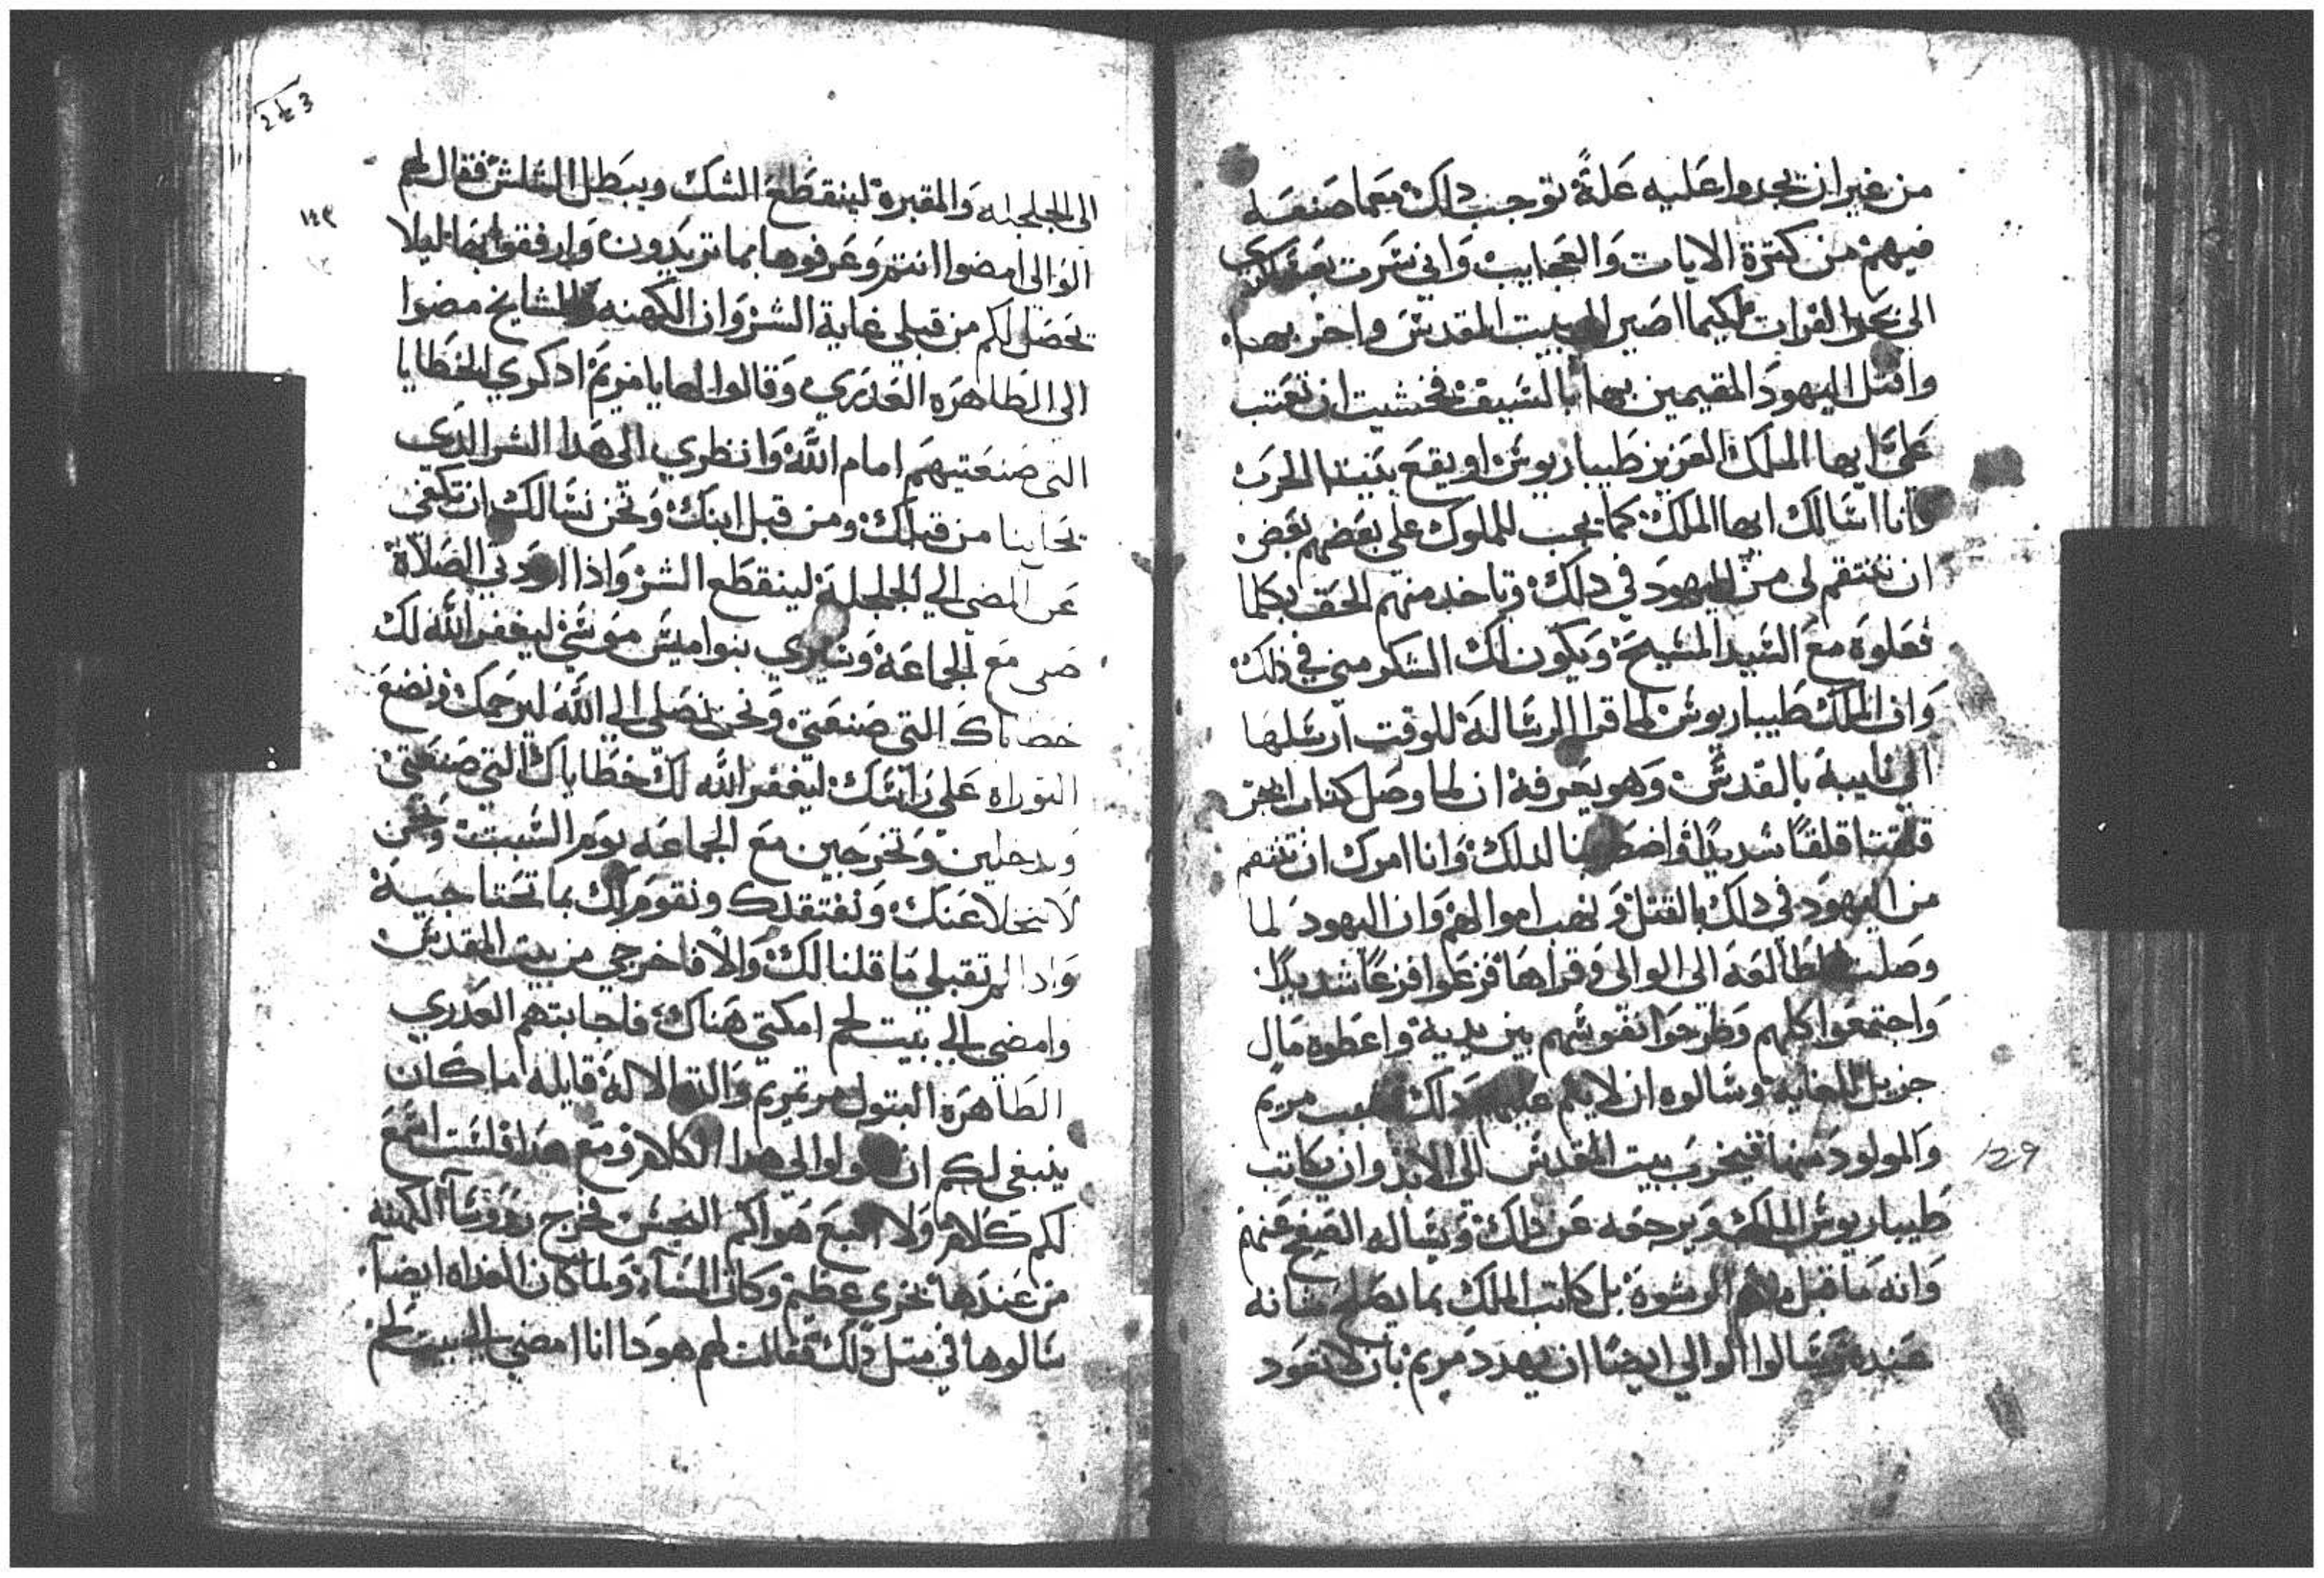 من غير ان يجدوا عليه علةً توجب دلك معما صنعه
فيهم من كترة الايات والعجايب واني سرت بعسكري
الى نحو الفرات لكيما اصير الى بيت المقدس واخربها
واقتل اليهود المقيمين بها بالسيف فخشيت ان تعتب
عليَّ ايها الملك العزيز طيباريوس او يقع بيننا الحرب
وانا اسالك ايها الملك كما يجب للملوك على بعضهم بعض
ان تنتقم لى من اليهود في دلك وتاخد منهم الحق بكلما
فعلوة مع السيد المسيح ويكون لك الشكر مني في ذلك
وان الملك طيباريوس لما قرا الرسالة للوقت ارسلها
الي نايبة بالقدس وهو يعرفة ان لما وصل كتاب ابجر
قلقنا قلقاً شديداً واضطربنا لدلك وانا امرك ان تنتقم
من اليهود في دلك بالقتل ونهب اموالهم وان اليهود لما
وصلت المطالعة الى الوالى وقراها فزعوا فزعاً شديداً
واجتمعوا كلهم وطرحوا نفوسهم بين يدية واعطوه مال
جزيل للغاية وسالوه ان لا يتم عليهم دلك بسبب مريم
والمولود منها فيخرب بيت المقدس الى الابد وان يكاتب
طيباريوس الملك ويرجعه عن دلك ويساله الصفح عنهم
وانه ما قبل منهم الرشوة بل كاتب الملك بما يصلح شانه
عنده وسالوا الوالي ايضا ان يهدد مريم بان لا تعود
243
١٤٣
الى الجلجله والمقبرة لينقطع الشك ويبطل السلس فقال لهم
الوالى امضوا انتم وعرفوها بما تريدون وارفقوا بها ليلا
يحصل لكم من قبلي غاية الشر وان الكهنه والمشايخ مضوا
الى الطاهره العدرى وقالوا لها يا مريم ادكري الخطايا
التى صنعتيهم امام اللَّه وانظري الى هدا الشر الدي
نحاينا من قبلك ومن قبل ابنك ونحن نسالك ان تكفى
عن المضى الي الجلجلة لينقطع الشر واذا اردتي الصلاة
صلى مع الجماعة وتسيري بنواميس موسي ليغفر اللَّه لك
خطاياك التى صنعتي ونحن نصلي الي اللَّه ليرحمك ونضع
التوراه على راسك ليغفر اللَّه لك خطاياك التي صنعتي
وتدخلين وتخرجين مع الجماعه يوم السبت ونحن
لا نتخلا عنك ونفتقدك ونقوم لك بما تحتاجية
وادا لم تقبلي ما قلنا لك والا فاخرجي من بيت المقدس
وامضي الي بيت لحم امكتي هناك فاجابتهم العدري
الطاهره البتول مرتمريم والدة الالة قايله ما كان
ينبغي لكم ان تقولوا لى هدا الكلام ومع هدا فلست اسمع
لكم كلام ولا اتبع هواكم النجس فخرج رووسا الكهنه
من عندها بخزي عظيم وكان المسا ولما كان الغداه ايضا
سالوها في متل دلك فقالت لهم هودا انا امضي الي بيت لحم
129